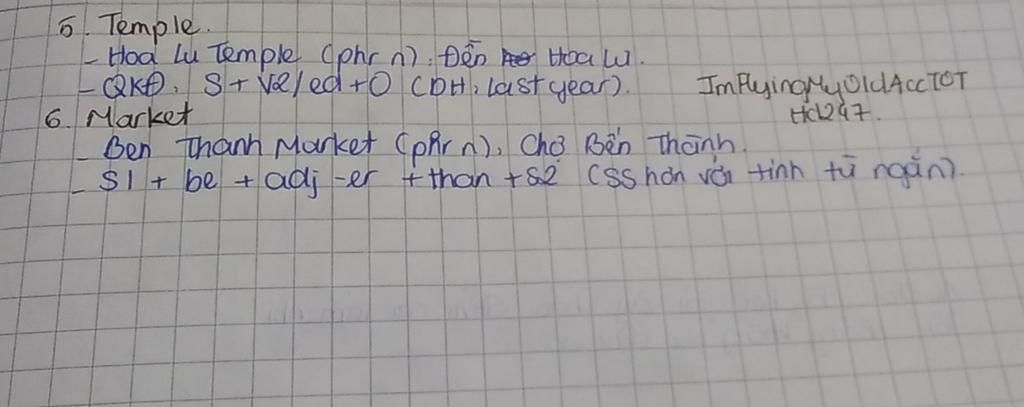 5. Temple.
- Hoa Lu Temple (phr n). Đền Hoa Lư.
- QKĐ. S + V2/ed + O (DH: last year).
ImFlyingMyOldAccTOT
6. Market
- Ben Thanh Market (phr n). Chợ Bến Thành.
- S1 + be + adj -er + than + S2 (SS hơn với tính từ ngắn).